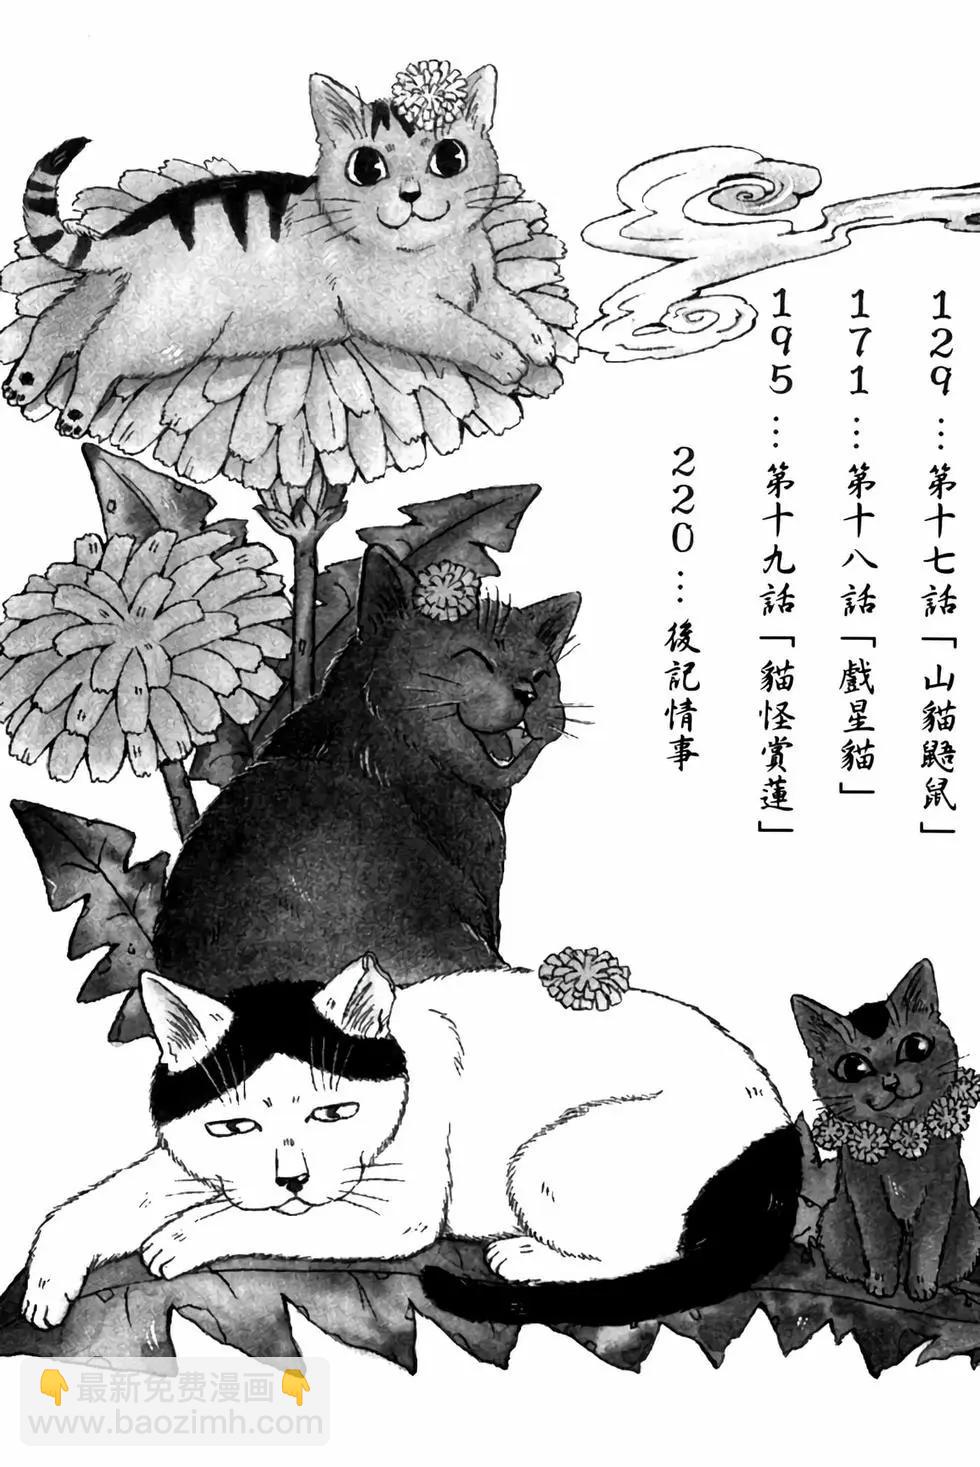 129…第十七話「山貓鼯鼠」
171…第十八話「戲星貓」
195…第十九話「貓怪賞蓮」
220…後記情事
👇最新免费漫画👇
www.baozimh.com